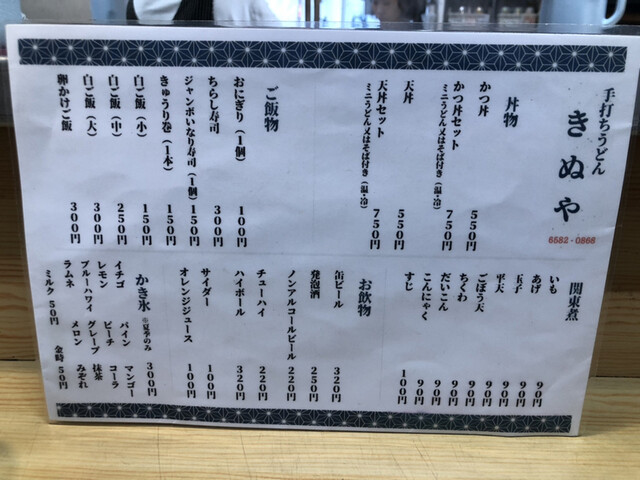 手打ちうどん
きぬや
6582-0868
丼物
かつ丼 550円
かつ丼セット 750円
ミニうどん又はそば付き(温・冷)
天丼 550円
天丼セット 750円
ミニうどん又はそば付き(温・冷)
ご飯物
おにぎり(1個) 100円
ちらし寿司 300円
ジャンボいなり寿司(1個) 150円
きゅうり巻(1本) 150円
白ご飯(小) 150円
白ご飯(中) 250円
白ご飯(大) 300円
卵かけご飯 300円
関東煮
いも 90円
あげ 90円
玉子 90円
平天 90円
ごぼう天 90円
ちくわ 90円
だいこん 90円
こんにゃく 90円
すじ 100円
お飲物
缶ビール 320円
発泡酒 250円
ノンアルコールビール 220円
チューハイ 220円
ハイボール 320円
サイダー 100円
オレンジジュース 100円
かき氷 ※夏季のみ 300円
イチゴ パイン マンゴー
レモン ピーチ コーラ
ブルーハワイ グレープ 抹茶
ラムネ メロン みぞれ
ミルク 50円 金時 50円